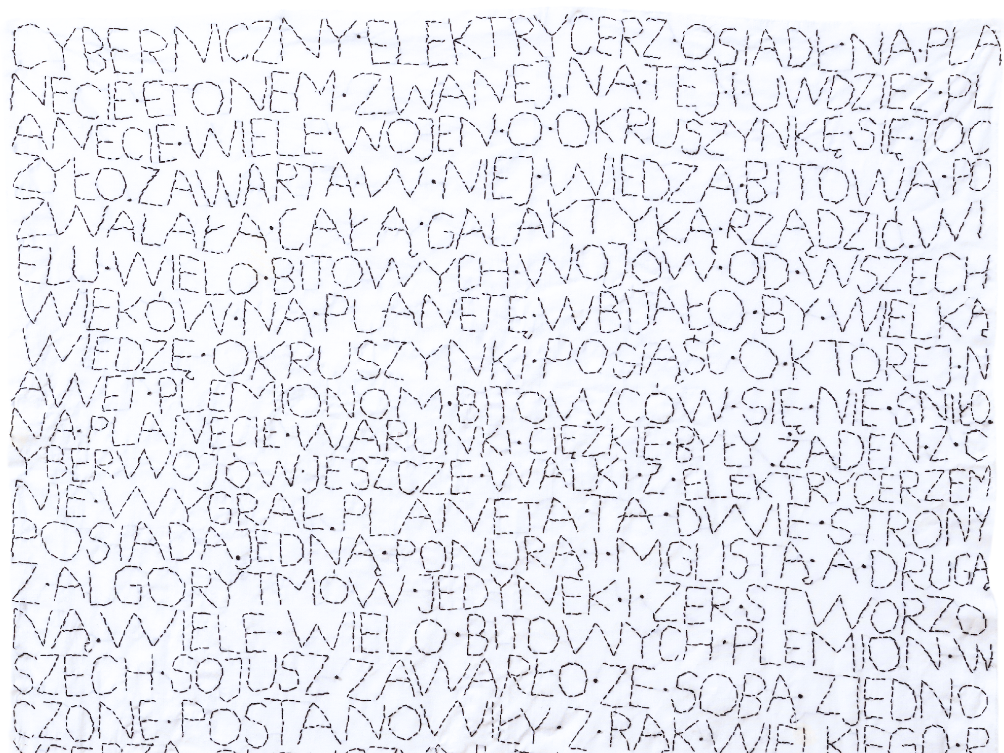 CYBERNICZNY·ELEKTRYCERZ·OSIADŁ·NA·PLA
NECIE·ETONEM·ZWANEJ.NA·TEJ·IUWDZIEŻ·PL
ANECIE·WIELE·WOJEN·O·OKRUSZYNKĘ·SIĘ·TOC
ZYŁO.ZAWARTA·W·NIEJ·WIEDZA·BITOWA·PO
ZWALAŁA·CAŁĄ·GALAKTYKĄ·RZĄDZIĆ.WI
ELU·WIELO·BITOWYCH·WOJÓW·OD·WSZECH
WIEKÓW·NA·PLANETĘ·WBIJAŁO·BY·WIELKĄ
WIEDZĘ·OKRUSZYNKI·POSIĄŚĆ·O·KTÓREJ·N
AWET·PLEMIONOM·BITOWCÓW·SIĘ·NIE·ŚNIŁO.
NA·PLANECIE·WARUNKI·CIĘŻKIE·BYŁY.ŻADEN·Z·C
YBERWOJÓW·JESZCZE·WALKI·Z·ELEKTRYCERZEM
NIE·WYGRAŁ.PLANETA·TA·DWIE·STRONY
POSIADA,JEDNĄ·PONURĄ·I·MGLISTĄ·A·DRUGĄ
Z·ALGORYTMÓW·JEDYNEK·I·ZER·STWORZO
NĄ·WIELE·WIELO·BITOWYCH·PLEMION·W
SZECH·SOJUSZ·ZAWARŁO·ZE·SOBĄ.ZJEDNO
CZONE·POSTANOWIŁY·Z·RĄK·WIELKIEGO·R